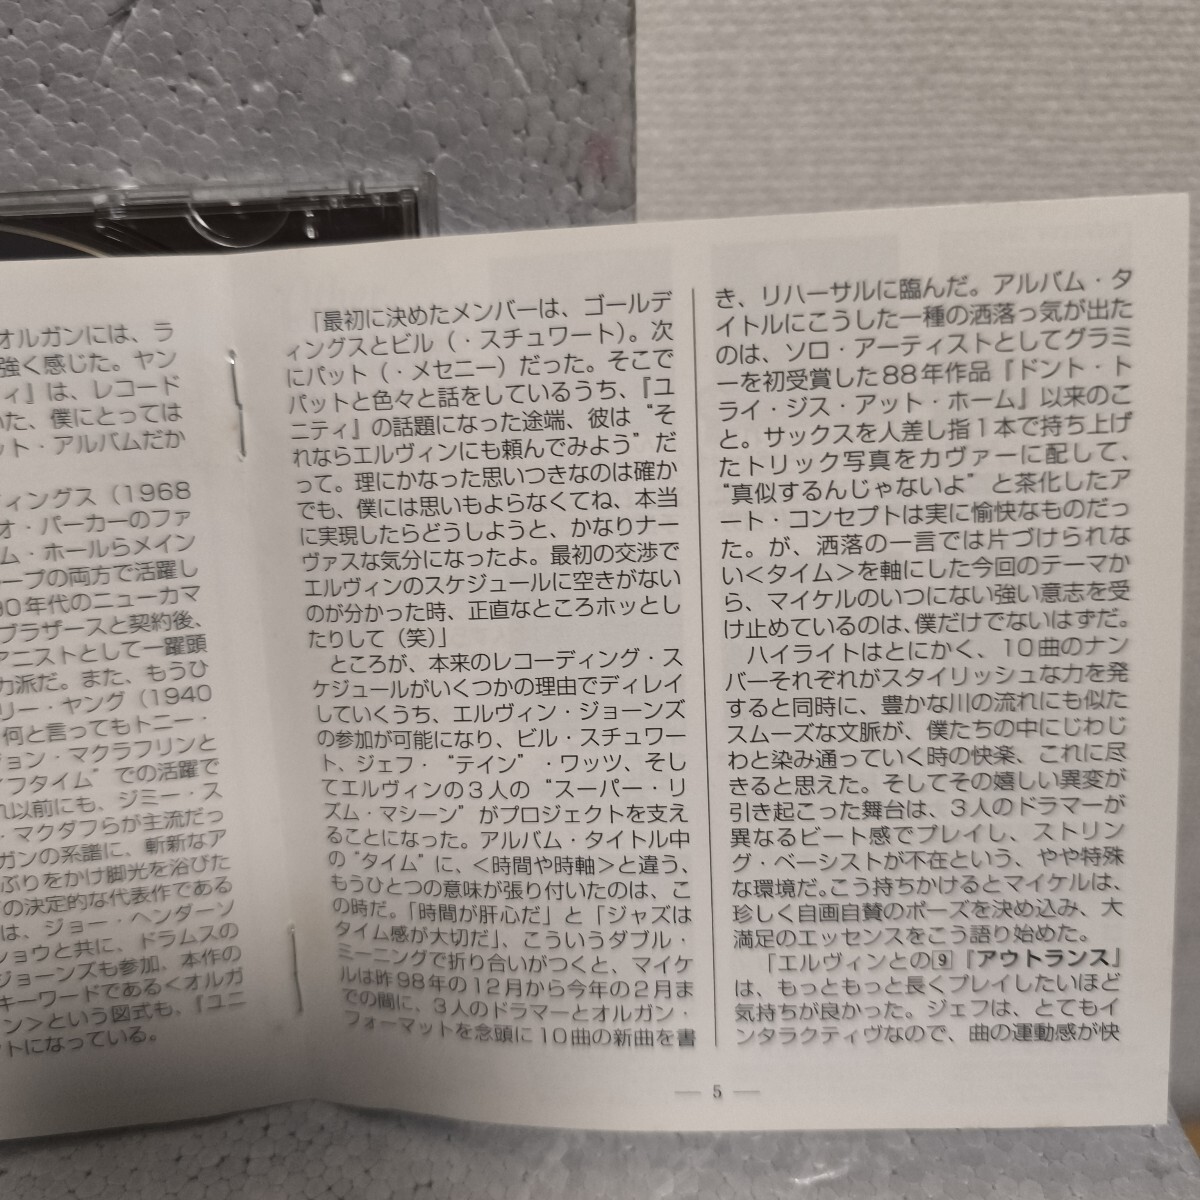 オルガンには、ラ
強く感じた。ヤン
ィ』は、レコード
いた、僕にとっては
ット・アルバムだか
ディングス（1968
オ・パーカーのファ
ム・ホールらメイン
ループの両方で活躍し
90年代のニューカマ
ブラザースと契約後、
アニストとして一躍頭
力派だ。また、もうひ
リー・ヤング（1940
何と言ってもトニー・
ジョン・マクラフリンと
イフタイム”での活躍で
れ以前にも、ジミー・ス
・マクダフらが主流だっ
ガンの系譜に、斬新なア
ぶりをかけ脚光を浴びた
の決定的な代表作である
は、ジョー・ヘンダーソ
ショウと共に、ドラムスの
ジョーンズも参加、本作の
キーワードである＜オルガ
ン＞という図式も、『ユニ
トになっている。
「最初に決めたメンバーは、ゴールデ
ィングスとビル（・スチュワート）。次
にパット（・メセニー）だった。そこで
パットと色々と話をしているうち、『ユ
ニティ』の話題になった途端、彼は“そ
れならエルヴィンにも頼んでみよう”だ
って。理にかなった思いつきなのは確か
でも、僕には思いもよらなくてね、本当
に実現したらどうしようと、かなりナー
ヴァスな気分になったよ。最初の交渉で
エルヴィンのスケジュールに空きがない
のが分かった時、正直なところホッとし
たりして（笑）」
ところが、本来のレコーディング・ス
ケジュールがいくつかの理由でディレイ
していくうち、エルヴィン・ジョーンズ
の参加が可能になり、ビル・スチュワー
ト、ジェフ・“テイン”・ワッツ、そし
てエルヴィンの3人の“スーパー・リ
ズム・マシーン”がプロジェクトを支え
ることになった。アルバム・タイトル中
の“タイム”に、＜時間や時軸＞と違う、
もうひとつの意味が張り付いたのは、こ
の時だ。「時間が肝心だ」と「ジャズは
タイム感が大切だ」、こういうダブル・
ミーニングで折り合いがつくと、マイケ
ルは昨98年の12月から今年の2月ま
での間に、3人のドラマーとオルガン・
フォーマットを念頭に10曲の新曲を書
き、リハーサルに臨んだ。アルバム・タ
イトルにこうした一種の洒落っ気が出た
のは、ソロ・アーティストとしてグラミ
ーを初受賞した88年作品『ドント・ト
ライ・ジス・アット・ホーム』以来のこ
と。サックスを人差し指1本で持ち上げ
たトリック写真をカヴァーに配して、
“真似するんじゃないよ”と茶化したア
ート・コンセプトは実に愉快なものだっ
た。が、洒落の一言では片づけられな
い＜タイム＞を軸にした今回のテーマか
ら、マイケルのいつにない強い意志を受
け止めているのは、僕だけでないはずだ。
ハイライトはとにかく、10曲のナン
バーそれぞれがスタイリッシュな力を発
すると同時に、豊かな川の流れにも似た
スムーズな文脈が、僕たちの中にじわじ
わと染み通っていく時の快楽、これに尽
きると思えた。そしてその嬉しい異変が
引き起こった舞台は、3人のドラマーが
異なるビート感でプレイし、ストリン
グ・ベーシストが不在という、やや特殊
な環境だ。こう持ちかけるとマイケルは、
珍しく自画自賛のポーズを決め込み、大
満足のエッセンスをこう語り始めた。
「エルヴィンとの9『アウトランス』
は、もっともっと長くプレイしたいほど
気持ちが良かった。ジェフは、とてもイ
ンタラクティヴなので、曲の運動感が快
― 5 ―